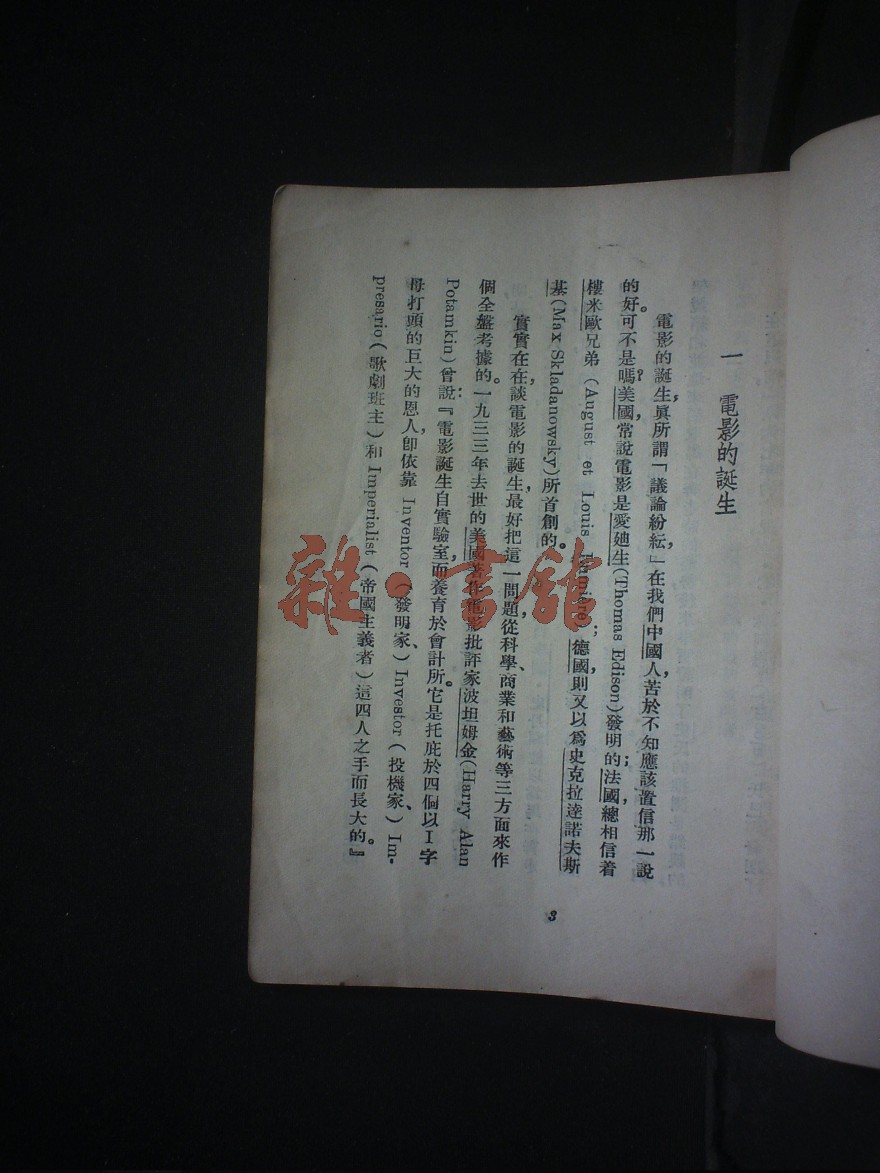 一 電影的誕生
電影的誕生，眞所謂「議論紛紜」，在我們中國人，苦於不知應該置信那一說
的好。可不是嗎？美國，常說電影是愛廸生(Thomas Edison)發明的；法國，總相信着
樓米歐兄弟（August et Louis Lumière）；德國，則又以爲史克拉達諾夫斯
基(Max Skladanowsky)所首創的。
實實在在，談電影的誕生，最好把這一問題從科學、商業和藝術等三方面來作
個全盤考據的。一九三三年去世的美國著作電影批評家波坦姆金(Harry Alan
Potamkin)曾說：『電影誕生自實驗室，而養育於會計所。它是托庇於四個以I字
母打頭的巨大的恩人，卽依靠 Inventor（發明家）、Investor（投機家）、Im-
presario（歌劇班主）和 Imperialist（帝國主義者）這四人之手而長大的。』
3
雜·書館